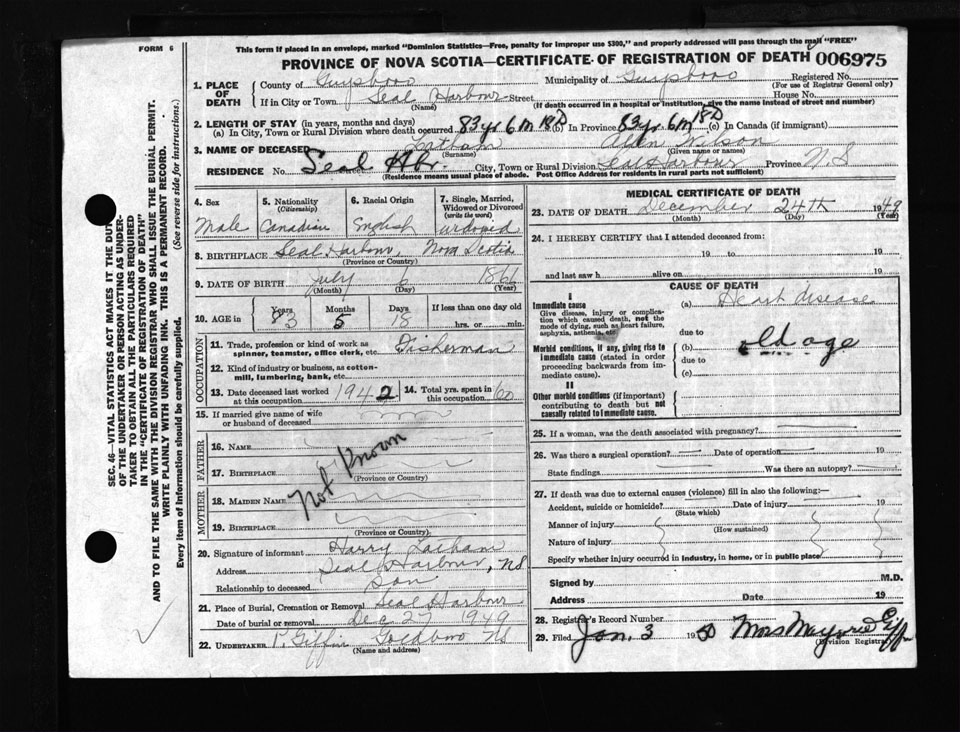 FORM 6
This form if placed in an envelope, marked "Dominion Statistics—Free, penalty for improper use $300," and properly addressed will pass through the mail "FREE"
PROVINCE OF NOVA SCOTIA—CERTIFICATE OF REGISTRATION OF DEATH 006975
1. PLACE OF DEATH County of Guysboro Municipality of Guysboro Registered No.
(For use of Registrar General only)
If in City or Town Seal Harbour Street House No.
(Name) (If death occurred in a hospital or institution, give the name instead of street and number)
2. LENGTH OF STAY (in years, months and days)
(a) In City, Town or Rural Division where death occurred 83 yr 6 M 18 D (b) In Province 83 yr 6 M 18 D (c) In Canada (if immigrant)
3. NAME OF DECEASED Latham Allen Wilson
(Surname) (Given name or names)
RESIDENCE No. Seal Hbr Street City, Town or Rural Division Seal Harbour Province N S
(Residence means usual place of abode. Post Office Address for residents in rural parts not sufficient)
4. Sex 5. Nationality (Citizenship) 6. Racial Origin 7. Single, Married, Widowed or Divorced (write the word)
Male Canadian English widowed
8. BIRTHPLACE Seal Harbour, Nova Scotia
(Province or Country)
9. DATE OF BIRTH July 6 1866
(Month) (Day) (Year)
10. AGE in Years Months Days If less than one day old
83 5 18 hrs. or min.
OCCUPATION
11. Trade, profession or kind of work as spinner, teamster, office clerk, etc. Fisherman
12. Kind of industry or business, as cotton-mill, lumbering, bank, etc.
13. Date deceased last worked at this occupation 1942 14. Total yrs. spent in this occupation 60
15. If married give name of wife or husband of deceased
FATHER
16. NAME
17. BIRTHPLACE
(Province or Country)
Not Known
MOTHER
18. MAIDEN NAME
19. BIRTHPLACE
(Province or Country)
20. Signature of informant Harry Latham
Address Seal Harbour, NS
Relationship to deceased son
21. Place of Burial, Cremation or Removal Seal Harbour
Date of burial or removal Dec 27 1949
22. UNDERTAKER P. Giffin Goldboro NS
(Name and address)
MEDICAL CERTIFICATE OF DEATH
23. DATE OF DEATH December 24th 1949
(Month) (Day) (Year)
24. I HEREBY CERTIFY that I attended deceased from:
19 to 19
and last saw h alive on 19
CAUSE OF DEATH
I
Immediate cause
Give disease, injury or complication which caused death, not the mode of dying, such as heart failure, asphyxia, asthenia, etc.
(a) Heart disease
due to
Morbid conditions, if any, giving rise to immediate cause (stated in order proceeding backwards from immediate cause).
(b) old age
due to
(c)
II
Other morbid conditions (if important) contributing to death but not causally related to immediate cause.
25. If a woman, was the death associated with pregnancy?
26. Was there a surgical operation? Date of operation 19
State findings Was there an autopsy?
27. If death was due to external causes (violence) fill in also the following:—
Accident, suicide or homicide? Date of injury 19
(State which)
Manner of injury
(How sustained)
Nature of injury
Specify whether injury occurred in industry, in home, or in public place
Signed by M.D.
Address Date 19
28. Registrar's Record Number
29. Filed Jan. 3 1950 Mrs Maynard Giffin
(Division Registrar)
SEC. 46—VITAL STATISTICS ACT MAKES IT THE DUTY
OF THE UNDERTAKER OR PERSON ACTING AS UNDER-
TAKER TO OBTAIN ALL THE PARTICULARS REQUIRED
IN THE "CERTIFICATE OF REGISTRATION OF DEATH"
AND TO FILE THE SAME WITH THE DIVISION REGISTRAR WHO SHALL ISSUE THE BURIAL PERMIT.
WRITE PLAINLY WITH UNFADING INK. THIS IS A PERMANENT RECORD.
Every item of Information should be carefully supplied. (See reverse side for instructions.)